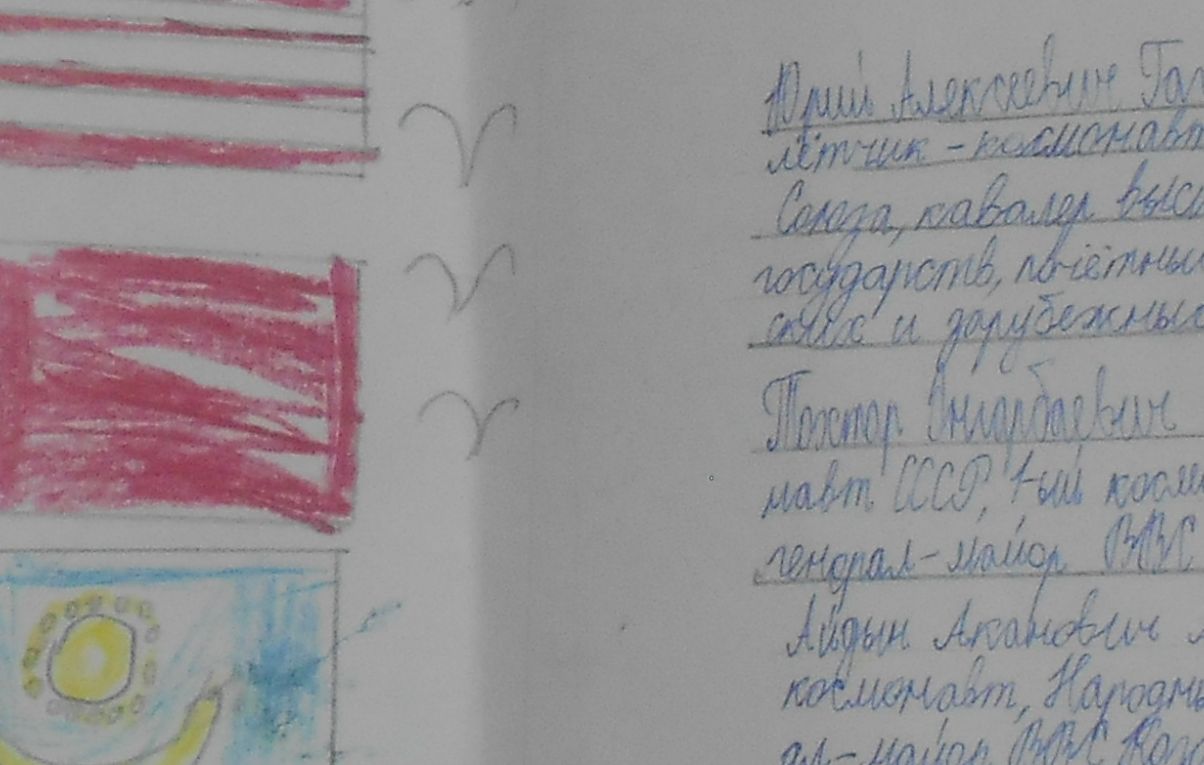 Юрий Алексеевич Гаг
лётчик-космонавт
Союза, кавалер высш
государств, почётный
ских и зарубежных
Тохтар Онгарбаевич
навт СССР, 1-ый косм
генерал-майор ВВС
Айдын Аканович
космонавт, Народны
ал-майор ВВС Каз